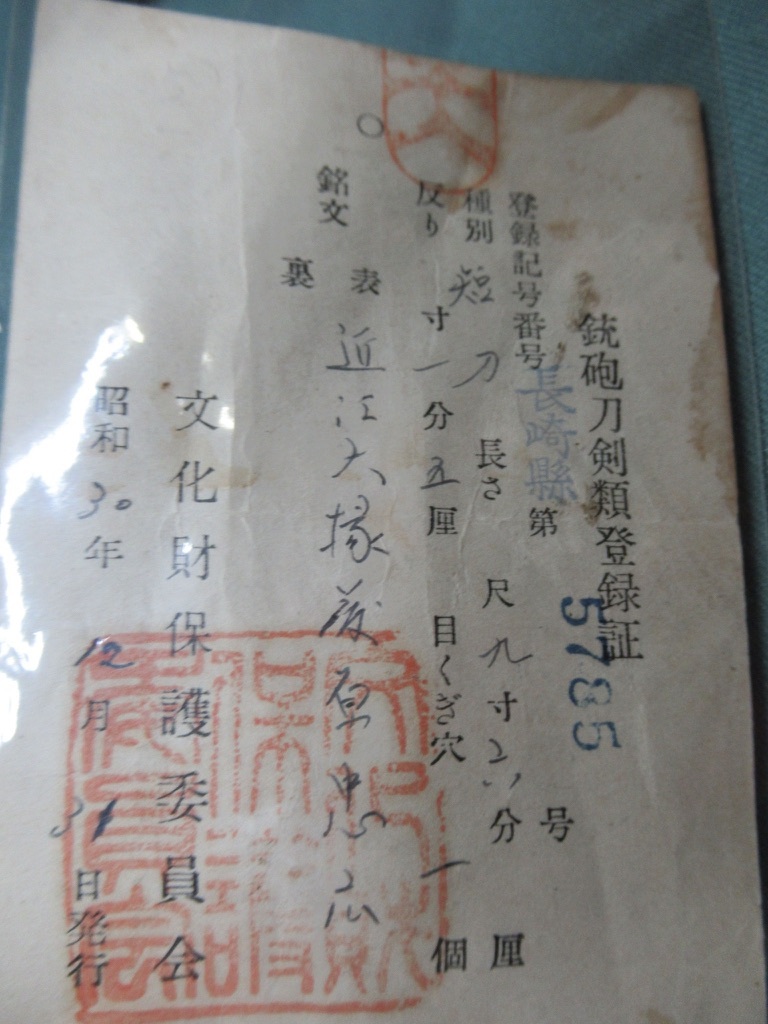 銃砲刀剣類登録証
登録記号番号 長崎縣 第 5785 号
種別 短刀 長さ 尺 九寸 六分 厘
反り 寸 一分 五厘 目くぎ穴 一個
銘文 表 近江大掾藤原忠広
裏
文化財保護委員会
昭和30年12月31日発行